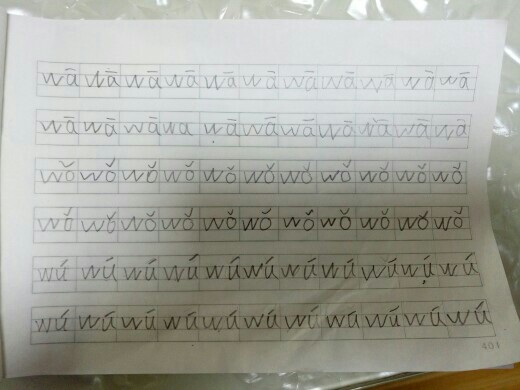 wā wā wā wā wā wā wā wā wā wā wā
wā wā wā wa wā wā wā wā wā wā wā
wǒ wǒ wǒ wǒ wǒ wǒ wǒ wǒ wǒ wǒ wǒ
wǒ wǒ wǒ wǒ wǒ wǒ wǒ wǒ wǒ wǒ wǒ
wú wú wú wú wú wú wú wú wú wú wú
wú wú wú wú wú wú wú wú wú wú wú